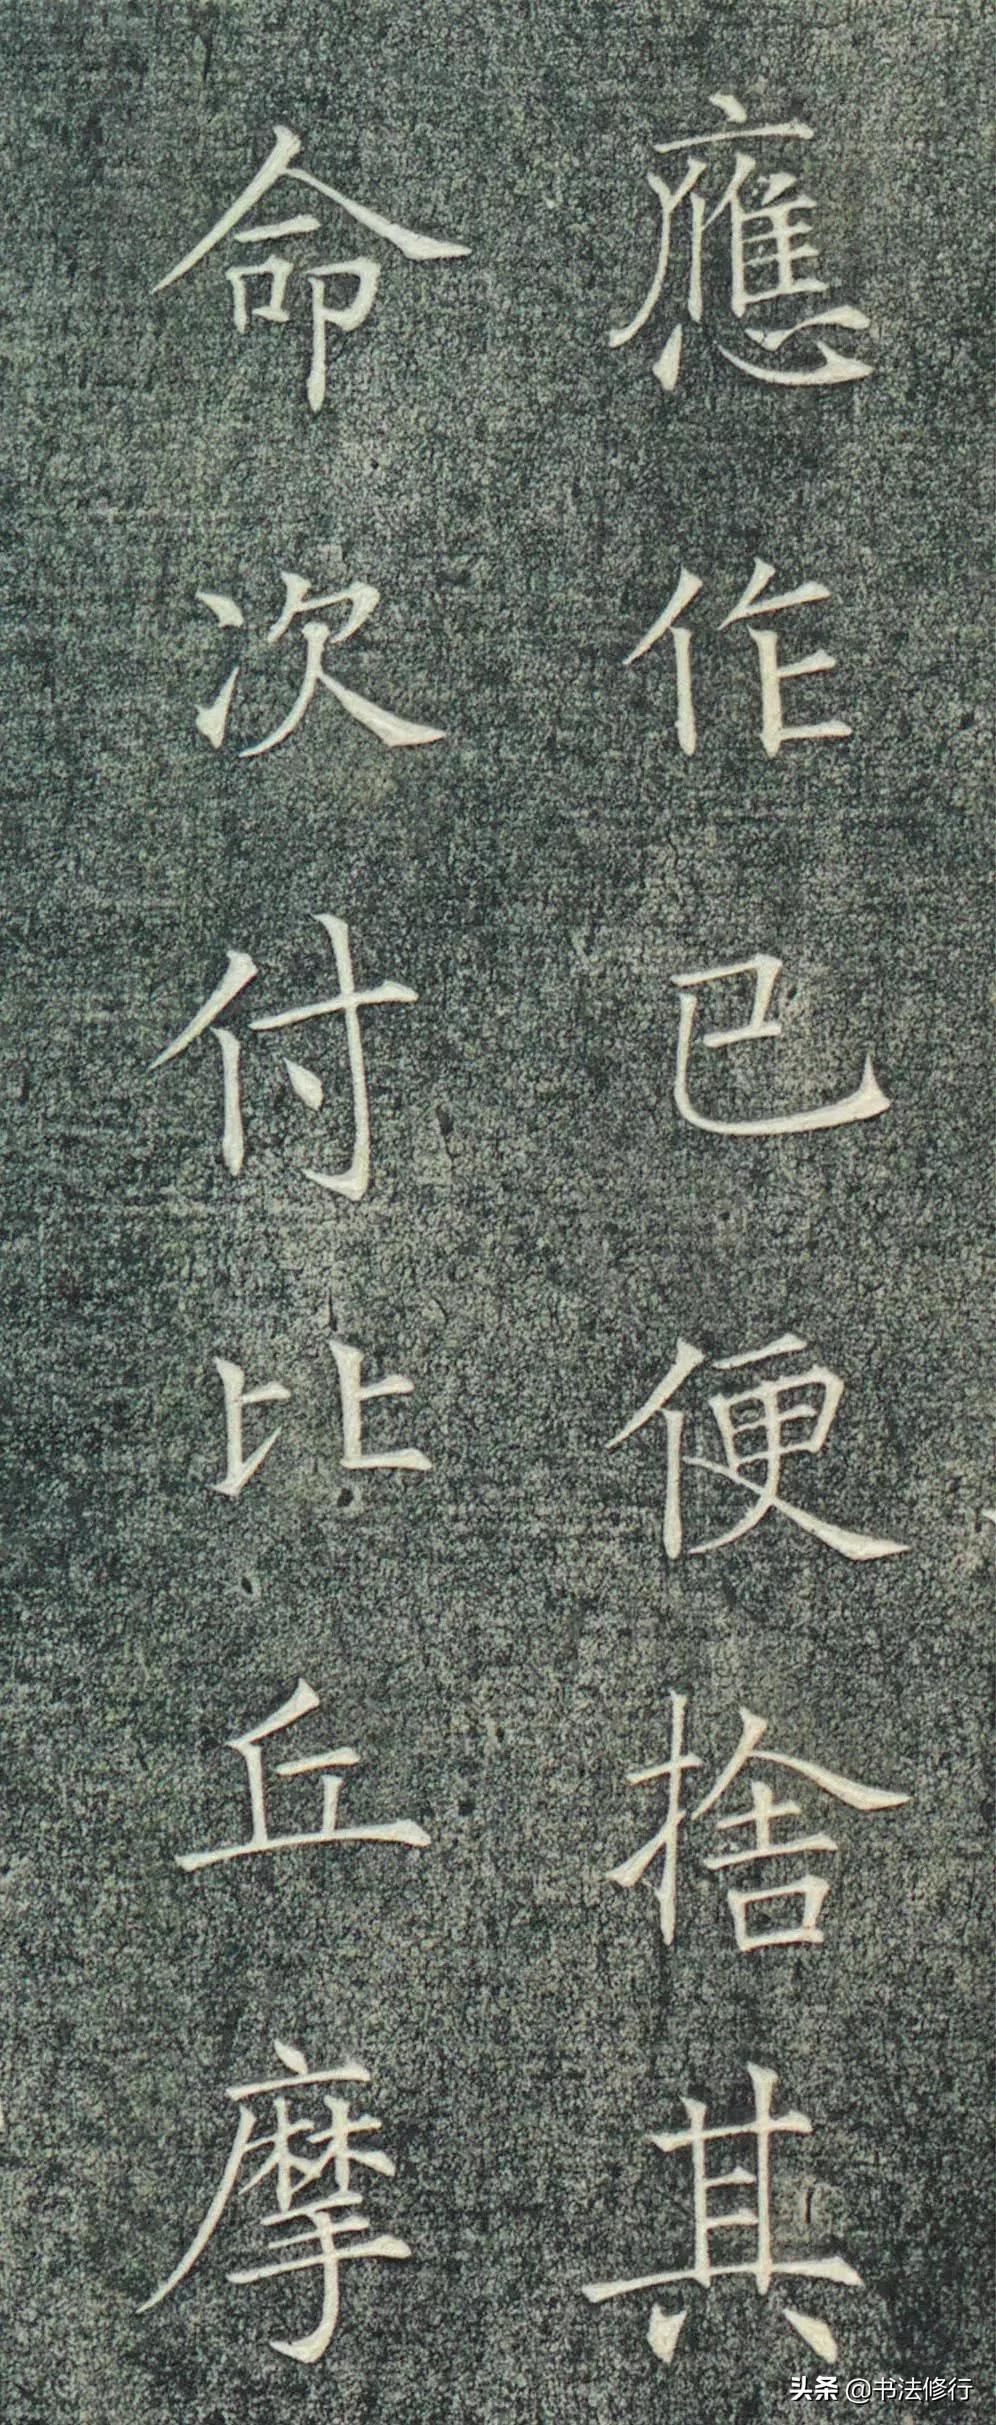 應作已便捨其
命次付比丘摩
头条 @书法修行